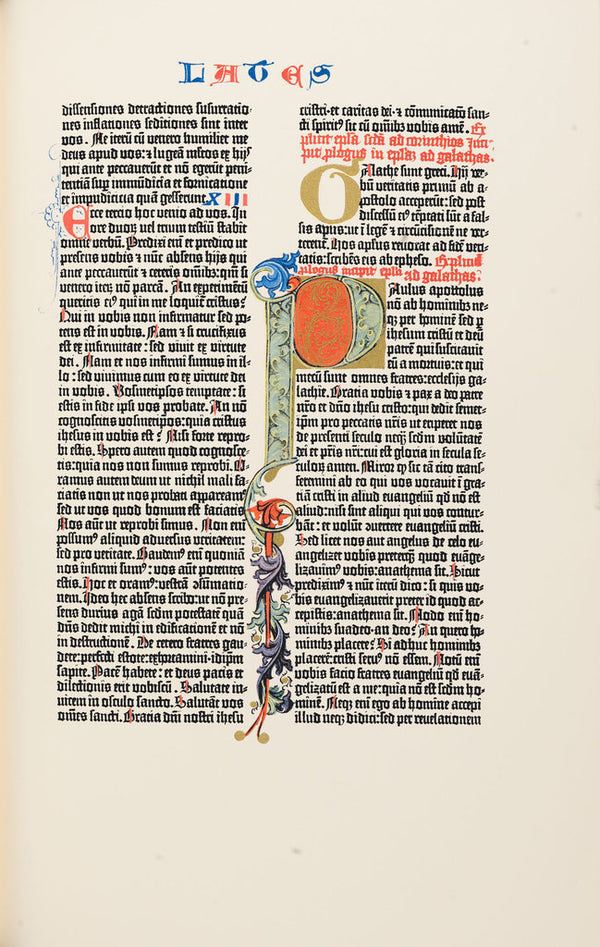 LATES
dissensiones detractiones susurratio-
nes inflationes seditiones sint inter
vos. Ne iterū cū venero humiliet me
deus apud vos: ⁊ lugeā m̄tos ex hijs
qui ante peccaverūt et nō egerūt peni-
tentiā sup̄ immūdicia et fornicatione
et impudicicia quā gesserunt. XIII
Ecce tercio hoc venio ad vos. In
ore duoꝝ vel trium testiū stabit
omne verbū. Predixi em̄ et predico ut
presens vobis ⁊ nūc absens hijs qui
ante peccaverūt ⁊ ceteris omībꝫ: qm̄ si
venero iteꝝ nō parcā. An experimentū
queritis eiꝰ qui in me loquit̄ cristus?
Qui in vobis non infirmatur sed po-
tens est in vobis. Nam ⁊ si crucifixus
est ex infirmitate: sed vivit ex virtute
dei. Nam et nos infirmi sumus in il-
lo: sed vivimus cum eo ex virtute dei
in vobis. Vosmetipsos temptate: si
estis in fide ipsi vos probate. An nō
cognoscitis vosmetipsos: quia cristus
ihesus in vobis est? Nisi forte repro-
bi estis. Spero autem quod cognosce-
tis: quia nos non sumus reprobi. O-
ramus autem deum ut nichil mali fa-
ciatis non ut nos probati appareamꝰ
sed ut vos quod bonum est faciatis.
Nos aūt ut reprobi simus. Non em̄
possumꝰ aliquid adversus veritatem:
sed pro veritate. Gaudemꝰ em̄ quoniā
nos infirmi sumꝰ: vos aūt potentes
estis. Hoc et oramꝰ: vestrā ɔsūmatio-
nem. Ideo hec absens scribo: ut nō pre-
sens durius agā scdm̄ potestatē quā
dn̄s dedit michi in edificationē et nō
in destructionē. De cetero fratres gau-
dete: perfecti estote: exhortamini: idip̄m
sapite. Pacē habete: et deus pacis et
dilectionis erit vobiscū. Salutate in-
vicem in osculo sancto. Salutāt vos
om̄es sancti. Gratia dn̄i nostri ihesu
cristi et caritas dei ⁊ cōmunicatō san-
cti spiritꝰ sit cū omībꝫ vobis amē. Ex-
plicit epl̄a scd̄a ad corinthios Inci-
pit ꝓlogus in ep̄lam ad galathas.
Galathe sunt greci. Hij ver-
bū veritatis primū ab a-
postolo acceperūt: sed post
discessū eiꝰ tēptati sūt a fal-
sis apꝉis: ut ī legē ⁊ circūcisionē ver-
terent̄. Hos apꝉus revocat ad fidē veri-
tatis: scribēs eis ab epheso. Explicit
ꝓlogus incipit epl̄a ad galathas.
Paulus apostolus
nō ab hominibꝫ ne-
qꝫ per hominē sed ꝑ
ihesum cristū et deū
patrē qui suscitavit
eū a mortuis: et qui
mecū sunt omnes fratres: ecclesijs ga-
lathie. Gratia vobis ⁊ pax a deo patre
nr̄o et dn̄o ihesu cristo: qui dedit semet-
ipm̄ pro peccatis nr̄is ut eriperet nos
de presenti seculo neqꝫ scdm̄ volūtatē
dei et pr̄is nr̄i: cui est gloria in secula se-
culoꝝ amen. Miror ꝙ sic tā cito trans-
feremini ab eo qui vos vocavit ī gra-
tiā cristi in aliud evangeliū: qd̄ nō est
aliud: nisi sunt aliqui qui vos contur-
bāt: et volūt ɔvertere evangeliū cristi.
Sed licet nos aut angelus de celo eu-
angelizet vobis preterqꝫ quod evāge-
lizavimꝰ vobis: anathema sit. Sicut
prediximꝰ ⁊ nūc iterū dico: si quis vo-
bis evangelizaverit preter id quod ac-
cepistis: anathema sit. Modo em̄ ho-
minibꝫ suadeo an deo? An quero ho-
minibꝫ placere? Si adhuc hominibꝫ
placerē: cristi servꝰ nō essem. Notū em̄
vobis facio fratres evangeliū qd̄ evā-
gelizatū est a me: quia nō est scdm̄ ho-
minē. Neqꝫ em̄ ego ab homine accepi
illud neqꝫ didici: sed per revelationem